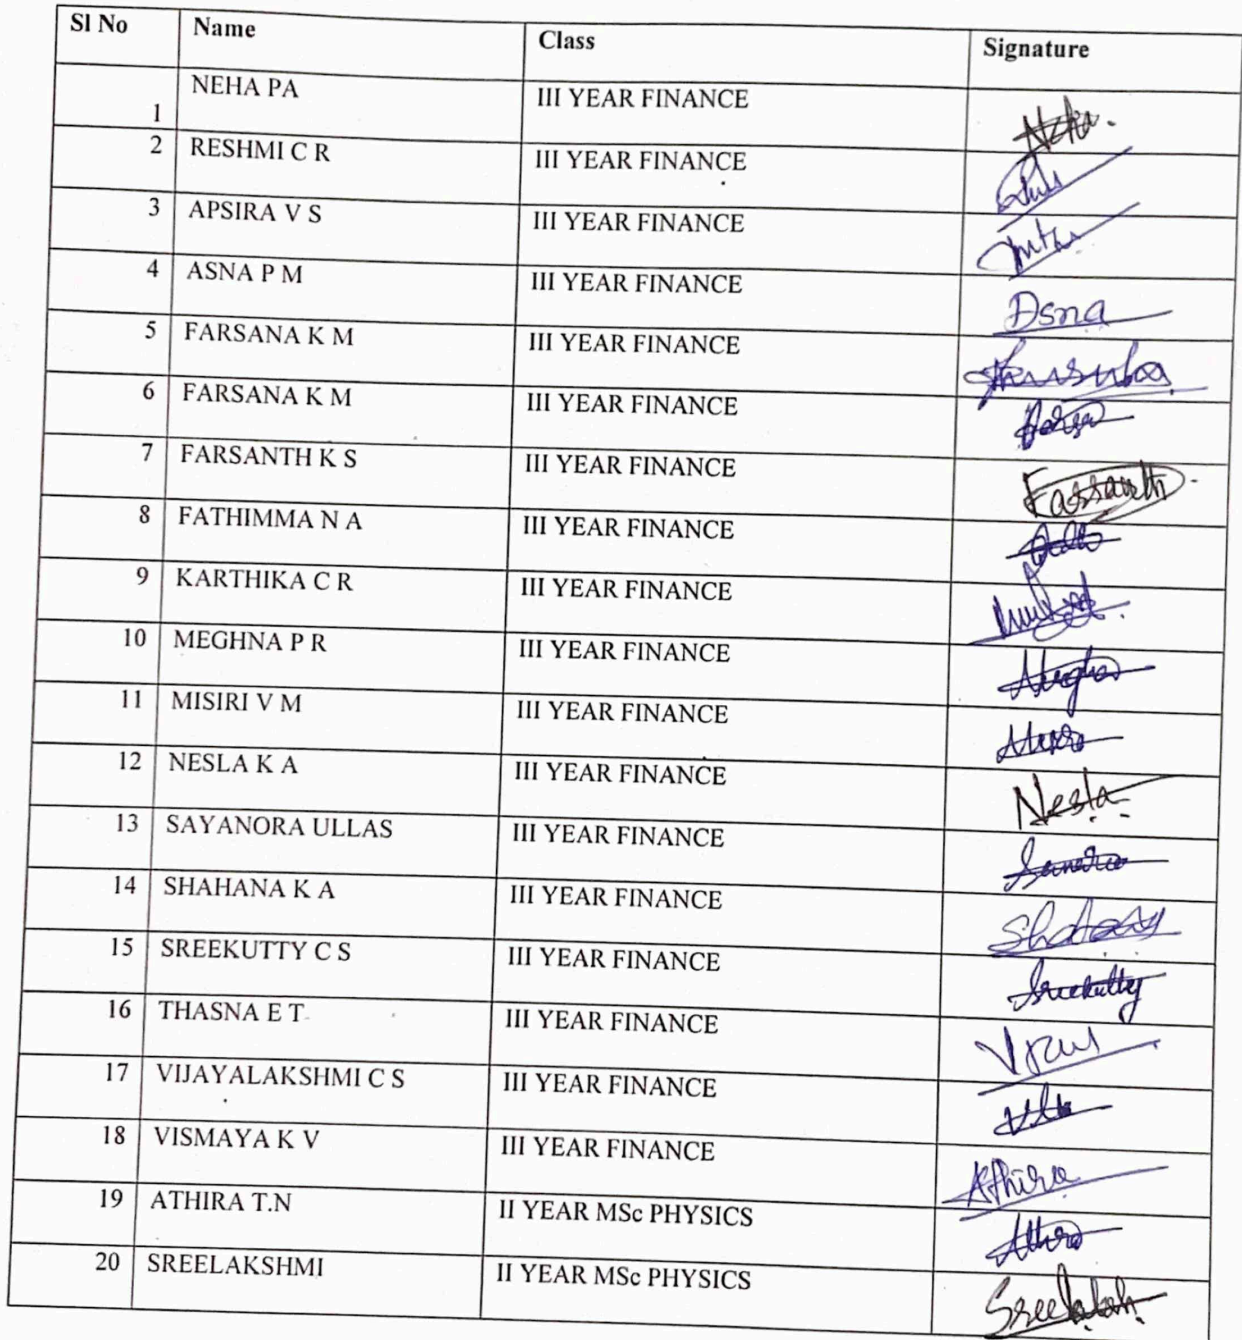 Sl No Name Class Signature
1 NEHA PA III YEAR FINANCE Neha.
2 RESHMI C R III YEAR FINANCE
3 APSIRA V S III YEAR FINANCE
4 ASNA P M III YEAR FINANCE Dsna
5 FARSANA K M III YEAR FINANCE
6 FARSANA K M III YEAR FINANCE
7 FARSANTH K S III YEAR FINANCE Farsanth
8 FATHIMMA N A III YEAR FINANCE
9 KARTHIKA C R III YEAR FINANCE
10 MEGHNA P R III YEAR FINANCE
11 MISIRI V M III YEAR FINANCE
12 NESLA K A III YEAR FINANCE Nesla
13 SAYANORA ULLAS III YEAR FINANCE
14 SHAHANA K A III YEAR FINANCE
15 SREEKUTTY C S III YEAR FINANCE Sreekutty
16 THASNA E T III YEAR FINANCE
17 VIJAYALAKSHMI C S III YEAR FINANCE
18 VISMAYA K V III YEAR FINANCE Athira
19 ATHIRA T.N II YEAR MSc PHYSICS
20 SREELAKSHMI II YEAR MSc PHYSICS